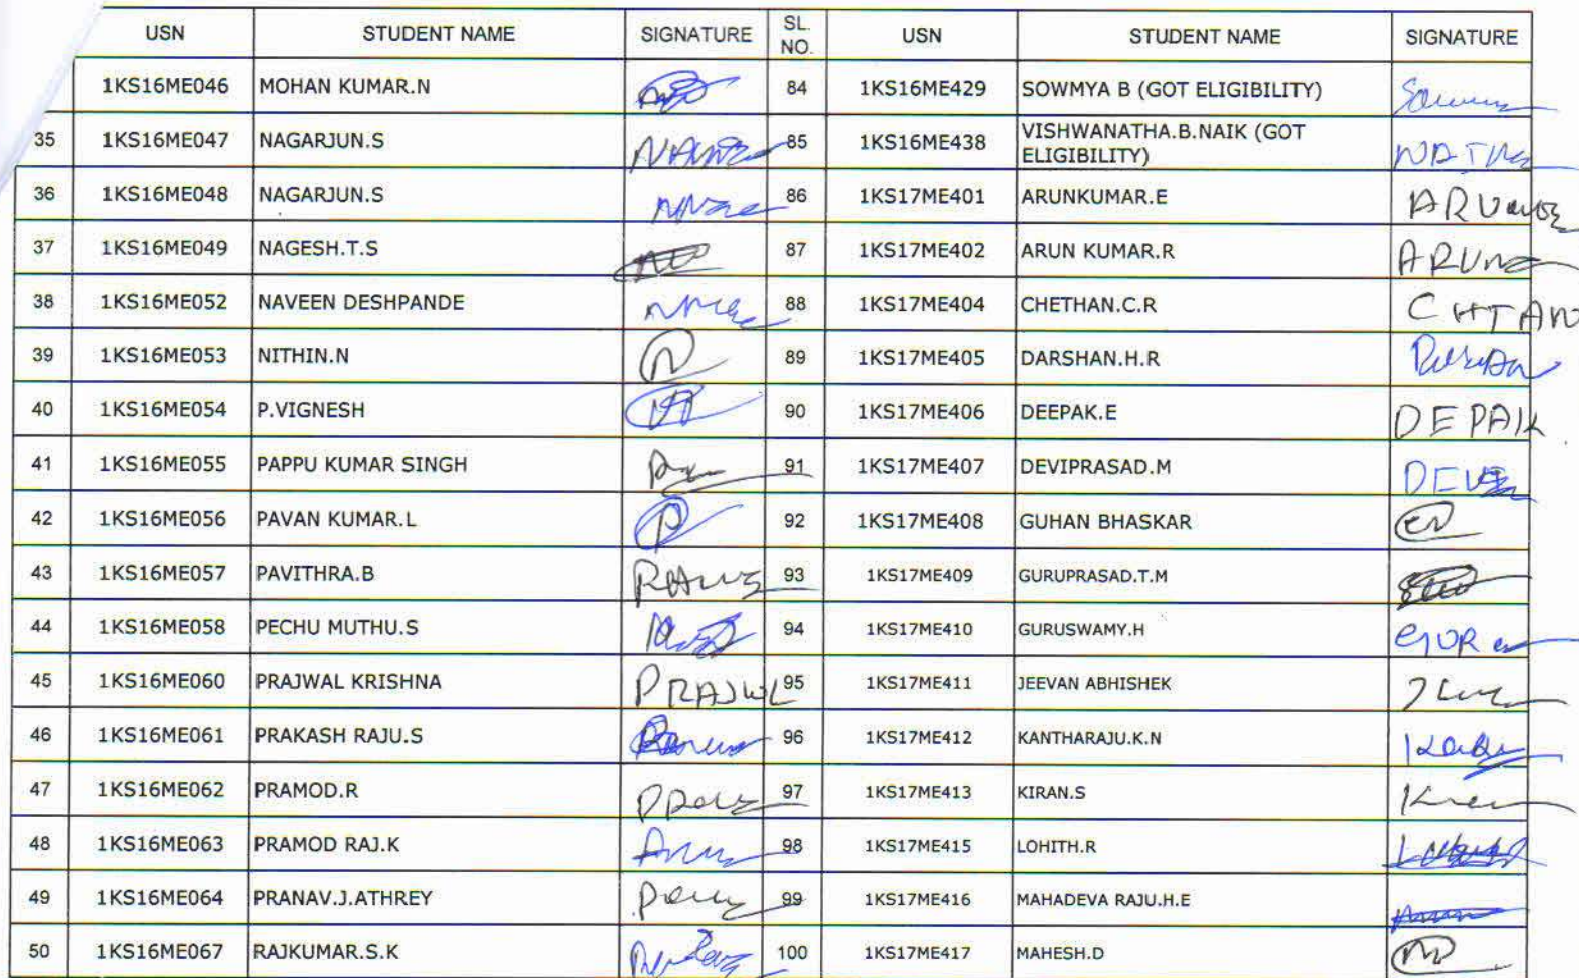 USN STUDENT NAME SIGNATURE SL. NO. USN STUDENT NAME SIGNATURE
1KS16ME046 MOHAN KUMAR.N 84 1KS16ME429 SOWMYA B (GOT ELIGIBILITY)
35 1KS16ME047 NAGARJUN.S 85 1KS16ME438 VISHWANATHA.B.NAIK (GOT ELIGIBILITY)
36 1KS16ME048 NAGARJUN.S 86 1KS17ME401 ARUNKUMAR.E
37 1KS16ME049 NAGESH.T.S 87 1KS17ME402 ARUN KUMAR.R
38 1KS16ME052 NAVEEN DESHPANDE 88 1KS17ME404 CHETHAN.C.R CHTAN
39 1KS16ME053 NITHIN.N N 89 1KS17ME405 DARSHAN.H.R
40 1KS16ME054 P.VIGNESH 90 1KS17ME406 DEEPAK.E DEPAK
41 1KS16ME055 PAPPU KUMAR SINGH 91 1KS17ME407 DEVIPRASAD.M
42 1KS16ME056 PAVAN KUMAR.L P 92 1KS17ME408 GUHAN BHASKAR
43 1KS16ME057 PAVITHRA.B 93 1KS17ME409 GURUPRASAD.T.M
44 1KS16ME058 PECHU MUTHU.S 94 1KS17ME410 GURUSWAMY.H
45 1KS16ME060 PRAJWAL KRISHNA PRAJWL 95 1KS17ME411 JEEVAN ABHISHEK
46 1KS16ME061 PRAKASH RAJU.S 96 1KS17ME412 KANTHARAJU.K.N
47 1KS16ME062 PRAMOD.R 97 1KS17ME413 KIRAN.S
48 1KS16ME063 PRAMOD RAJ.K 98 1KS17ME415 LOHITH.R
49 1KS16ME064 PRANAV.J.ATHREY 99 1KS17ME416 MAHADEVA RAJU.H.E
50 1KS16ME067 RAJKUMAR.S.K 100 1KS17ME417 MAHESH.D